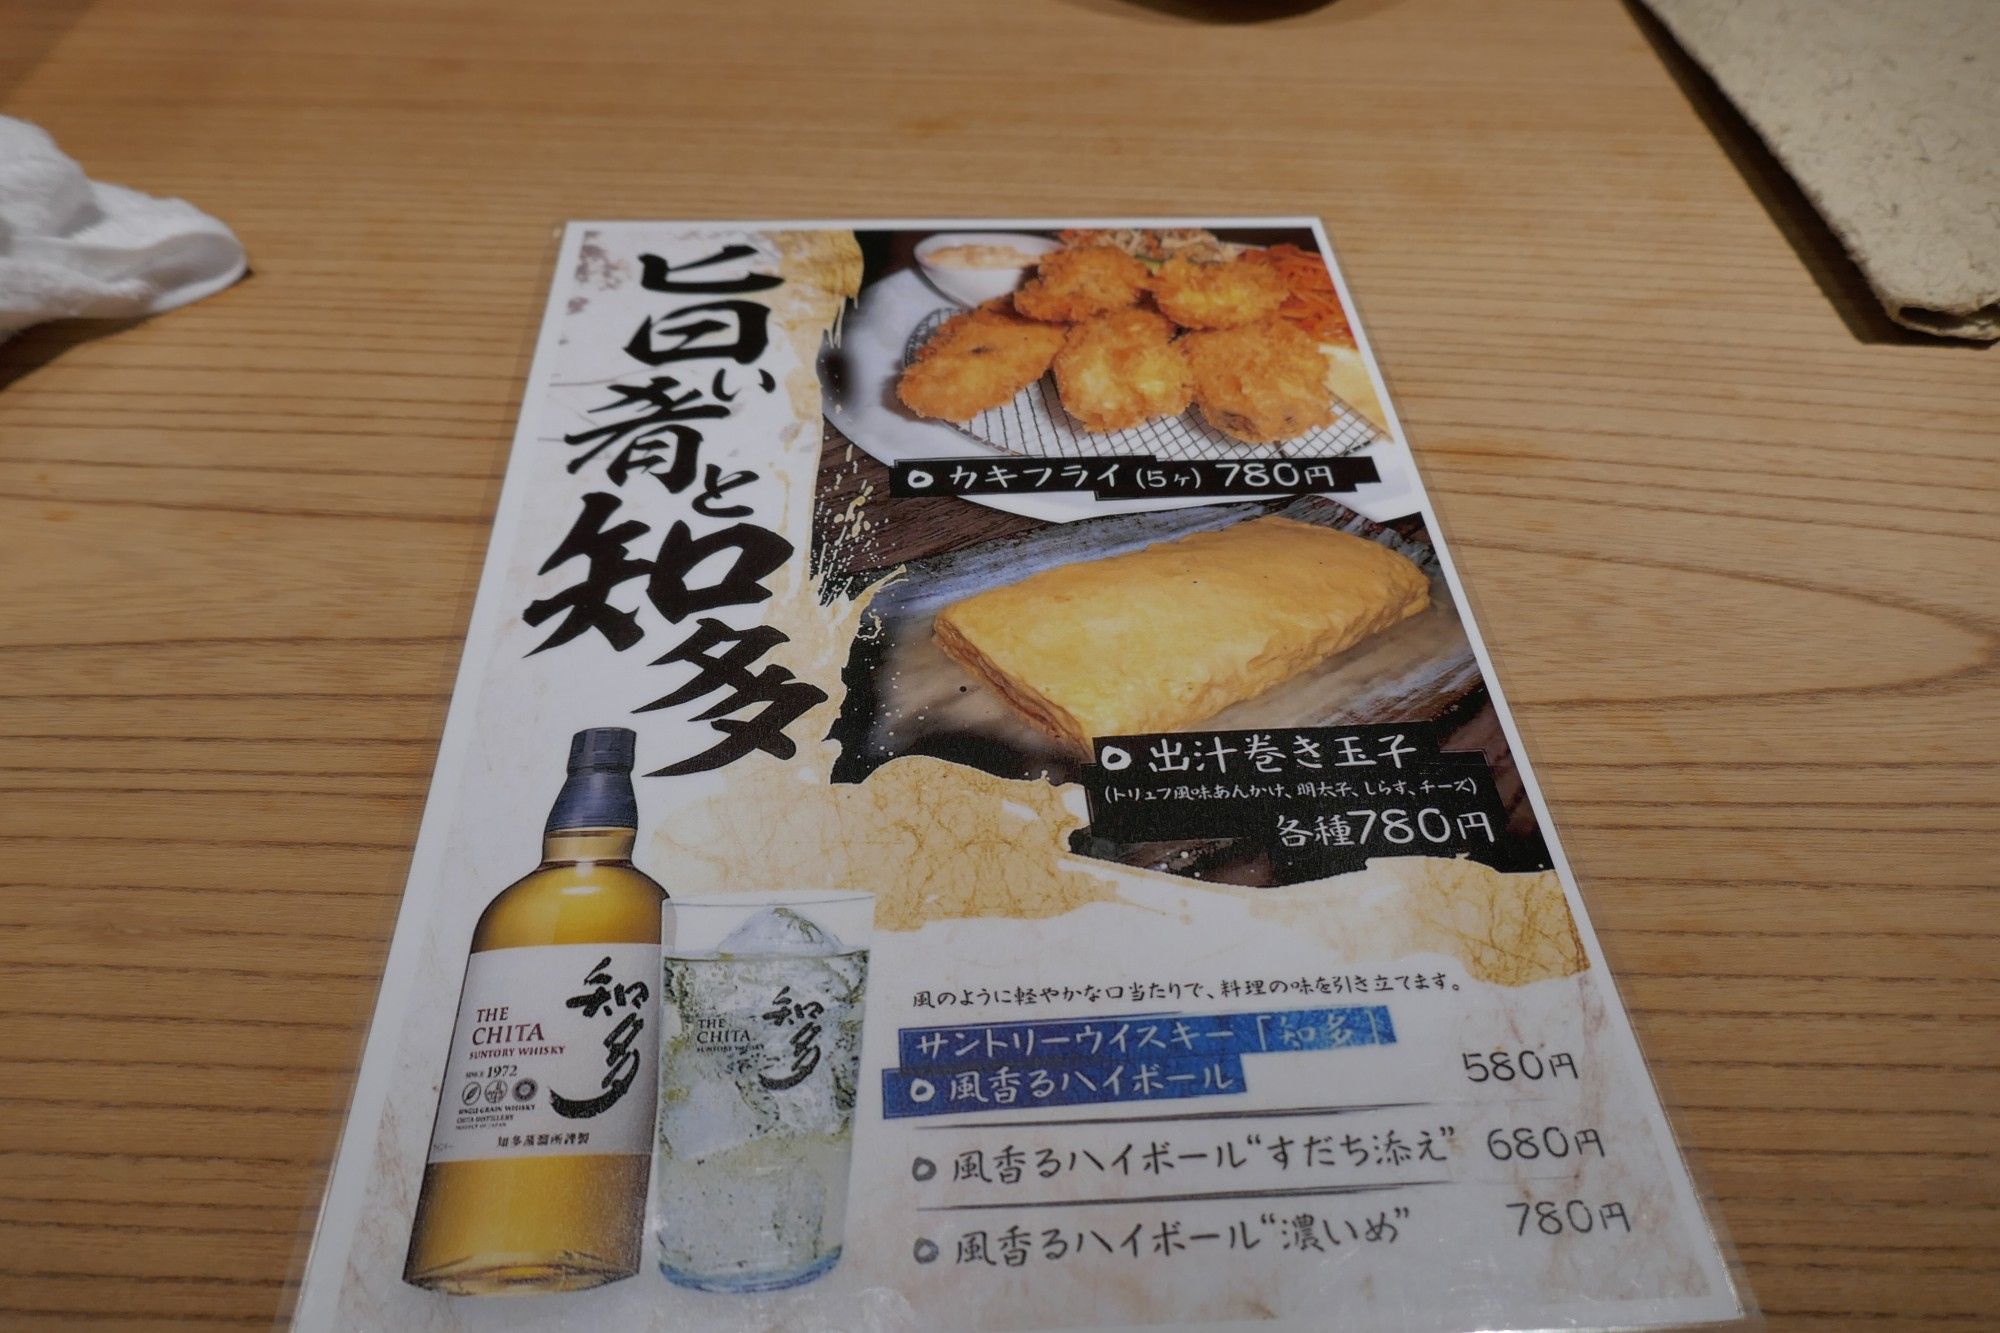 旨い肴と知多
カキフライ(5ヶ) 780円
出汁巻き玉子
(トリュフ風味あんかけ、明太子、しらす、チーズ)
各種780円
風のように軽やかな口当たりで、料理の味を引き立てます。
サントリーウイスキー「知多」
風香るハイボール 580円
風香るハイボール“すだち添え” 680円
風香るハイボール“濃いめ” 780円
知多
THE
CHITA
SUNTORY WHISKY
SINCE 1972
SINGLE GRAIN WHISKY
CHITA DISTILLERY
PRODUCT OF JAPAN
知多
THE
CHITA
SUNTORY WHISKY